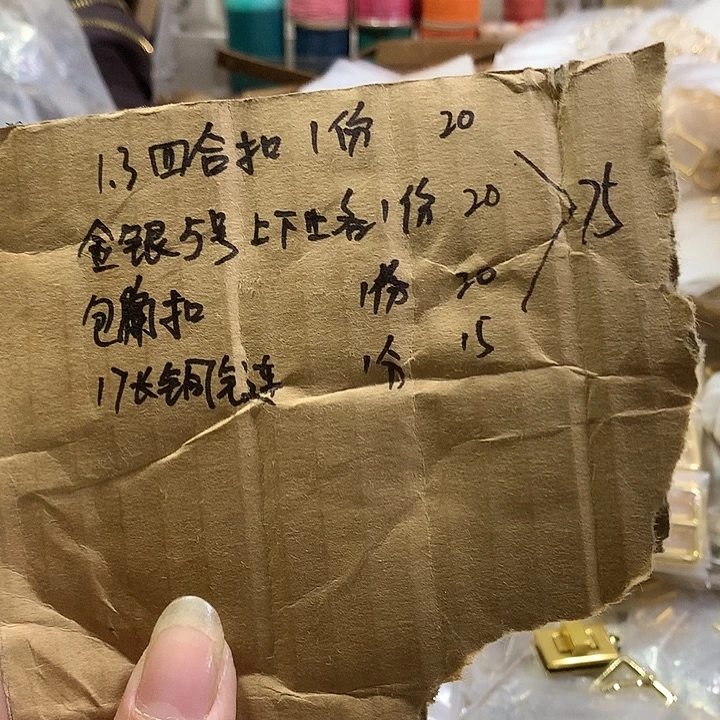 1.3四合扣 1份 20
金银5号上下止各1份 20
包扣 1份 20
17长铜 1份 15
75